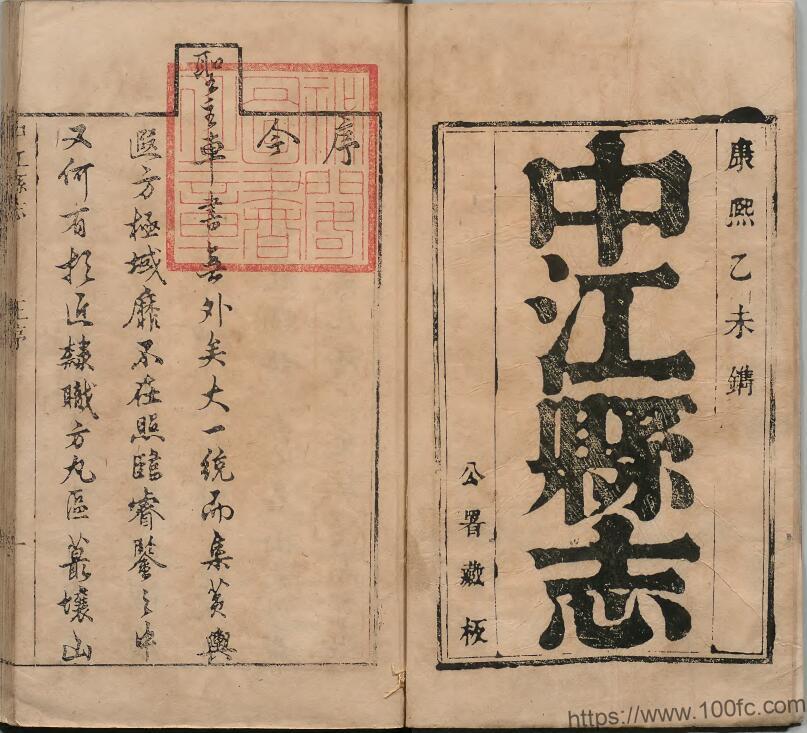 康熙乙未鐫
中江縣志
公署藏板
序
今
聖主車書無外矣大一統而集黃輿
遐方極域靡不在照臨睿鑒之中
又何有於近隸職方九區蕞壤山
中江縣志
祕閣圖書之章
https://www.100fc.com